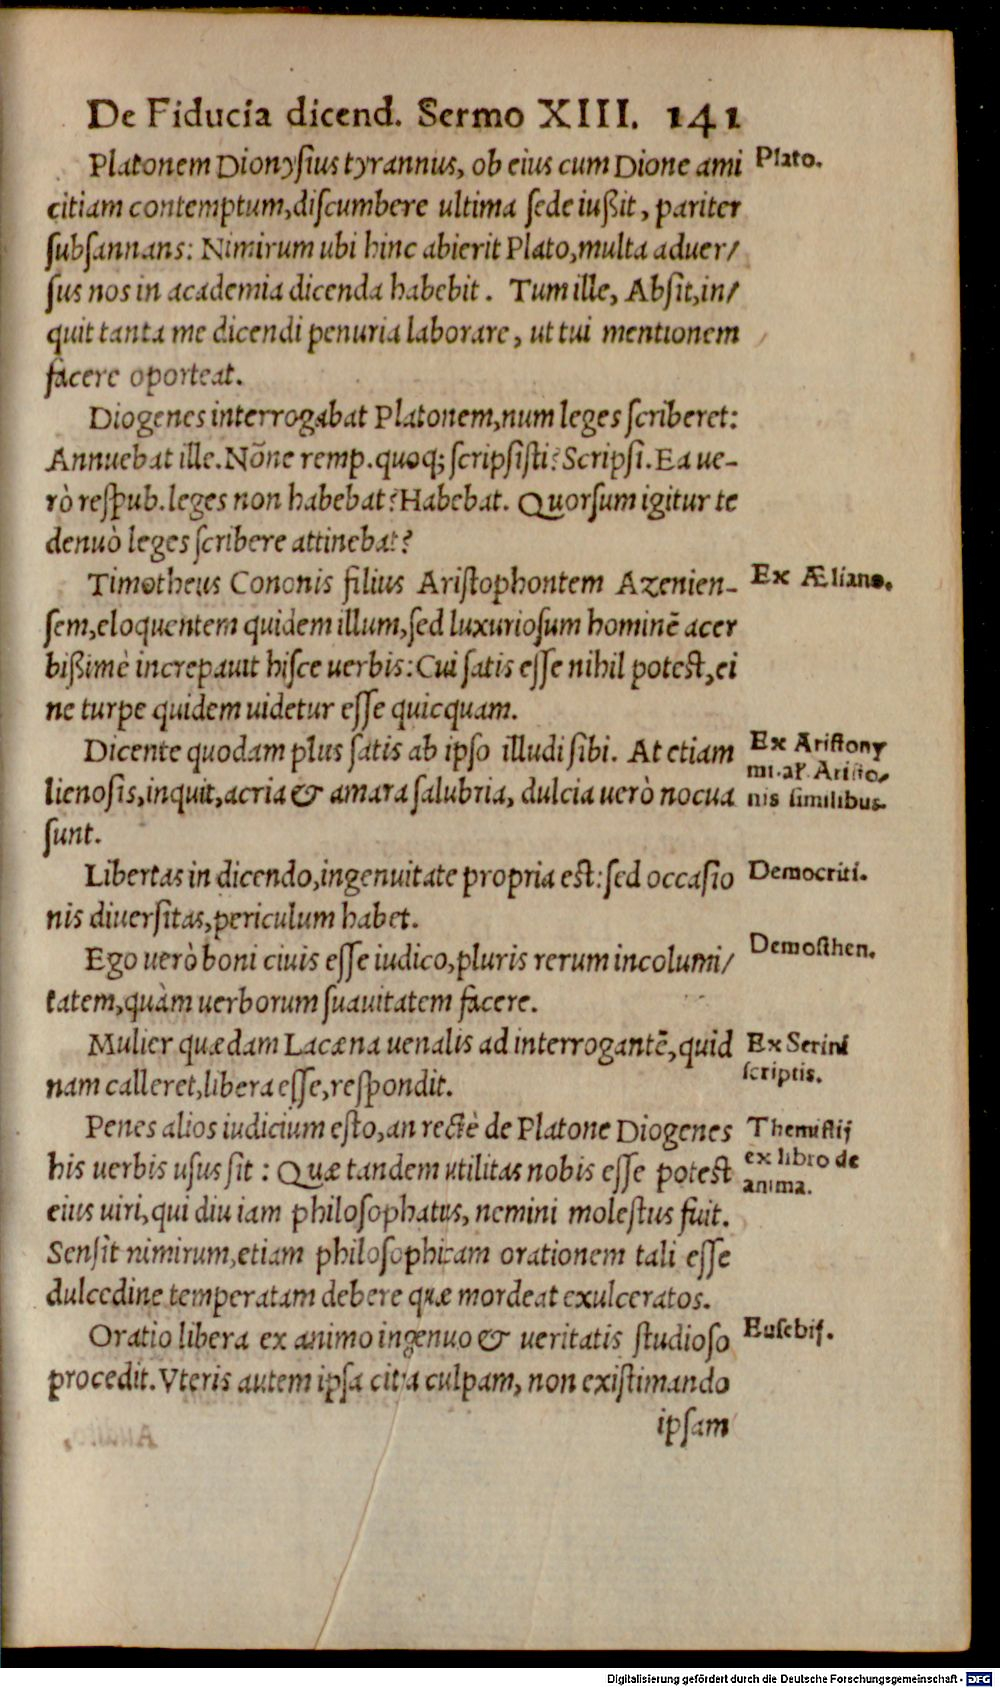 De Fiducia dicend. Sermo XIII. 141
Platonem Dionysius tyrannus, ob eius cum Dione ami
Plato.
citiam contemptum, discumbere ultima sede iußit, pariter
subsannans: Nimirum ubi hinc abierit Plato, multa aduer/
sus nos in academia dicenda habebit. Tum ille, Absit, in/
quit tanta me dicendi penuria laborare, ut tui mentionem
facere oporteat.
Diogenes interrogabat Platonem, num leges scriberet:
Annuebat ille. Nõne remp. quoq; scripsisti? Scripsi. Ea ue-
rò respub. leges non habebat? Habebat. Quorsum igitur te
denuò leges scribere attinebat?
Timotheus Cononis filius Aristophontem Azenien-
Ex Æliano.
sem, eloquentem quidem illum, sed luxuriosum hominẽ acer
bißimè increpauit hisce uerbis: Cui satis esse nihil potest, ei
ne turpe quidem uidetur esse quicquam.
Dicente quodam plus satis ab ipso illudi sibi. At etiam
Ex Aristony
mi. aꝉ. Aristo/
lienosis, inquit, acria & amara salubria, dulcia uerò nocua
nis similibus.
sunt.
Libertas in dicendo, ingenuitate propria est: sed occasio
Democriti.
nis diuersitas, periculum habet.
Ego uerò boni ciuis esse iudico, pluris rerum incolumi/
Demosthen.
tatem, quàm uerborum suauitatem facere.
Mulier quædam Lacæna uenalis ad interrogantẽ, quid
Ex Serini
scriptis.
nam calleret, libera esse, respondit.
Penes alios iudicium esto, an rectè de Platone Diogenes
Themistij
ex libro de
anima.
his uerbis usus sit: Quæ tandem utilitas nobis esse potest
eius uiri, qui diu iam philosophatus, nemini molestus fuit.
Sensit nimirum, etiam philosophicam orationem tali esse
dulcedine temperatam debere quæ mordeat exulceratos.
Oratio libera ex animo ingenuo & ueritatis studioso
Eusebij.
procedit. Vteris autem ipsa citra culpam, non existimando
ipsam
Digitalisierung gefördert durch die Deutsche Forschungsgemeinschaft - DFG